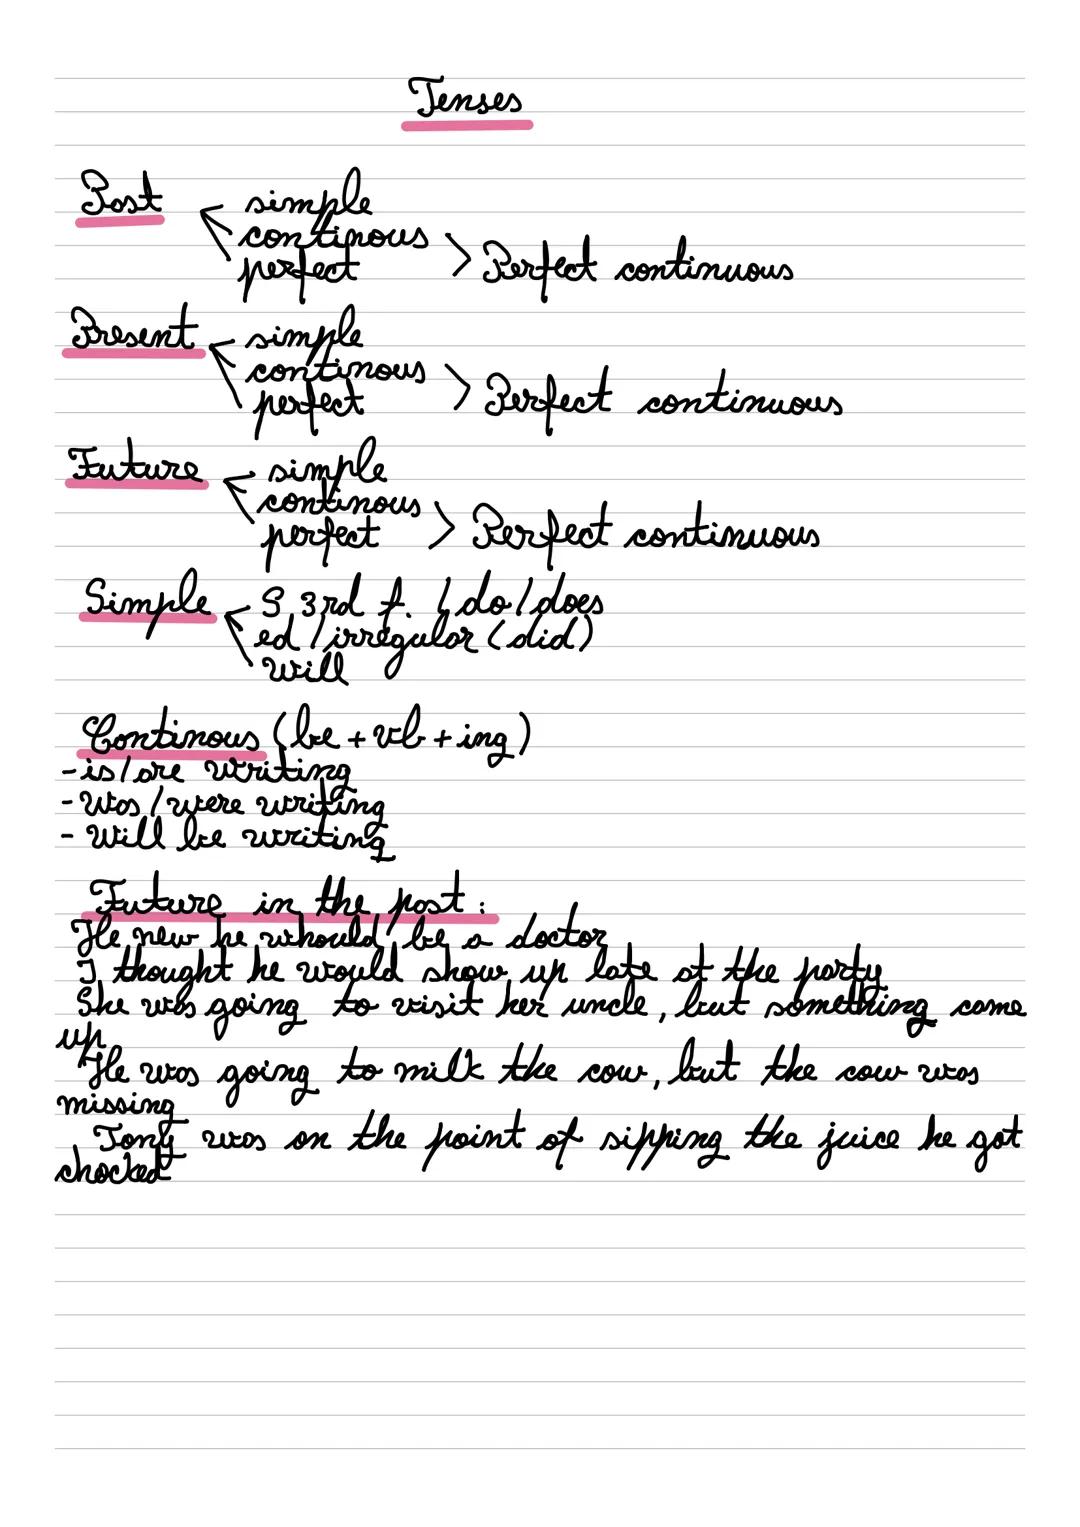 Tenses
Past
simple
continous
perfect > Perfect continuous
Present
simple
continous
perfect > Perfect continuous
Future
simple
continous
perfect > Perfect continuous
Simple
S 3rd f. / do / does
ed / irregular (did)
Will
Continous (be + vb + ing)
- is / are writing
- Was / were writing
- Will be writing
Future in the past:
He new he whould be a doctor
I thought he would show up late at the party
She was going to visit her uncle, but something came
up
He was going to milk the cow, but the cow was
missing
Tony was on the point of sipping the juice he got
chocked